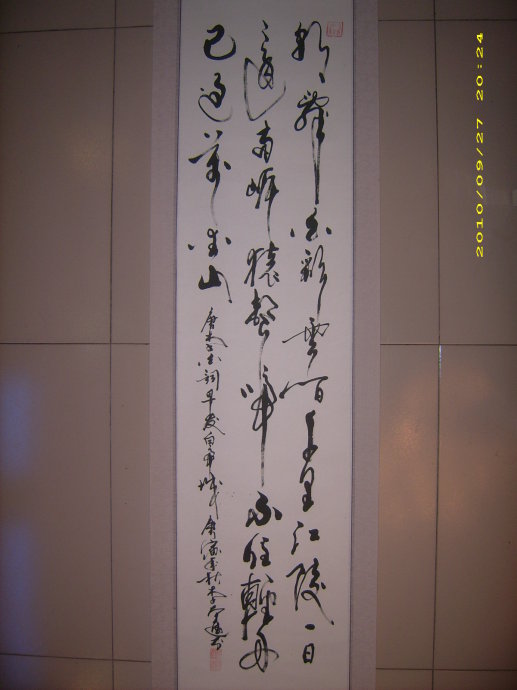 朝辭白帝彩雲間千里江陵一日
還兩岸猿聲啼不住輕舟
已過萬重山
唐李白詞早发白帝城庚寅秋李书
2010/09/27 20:24